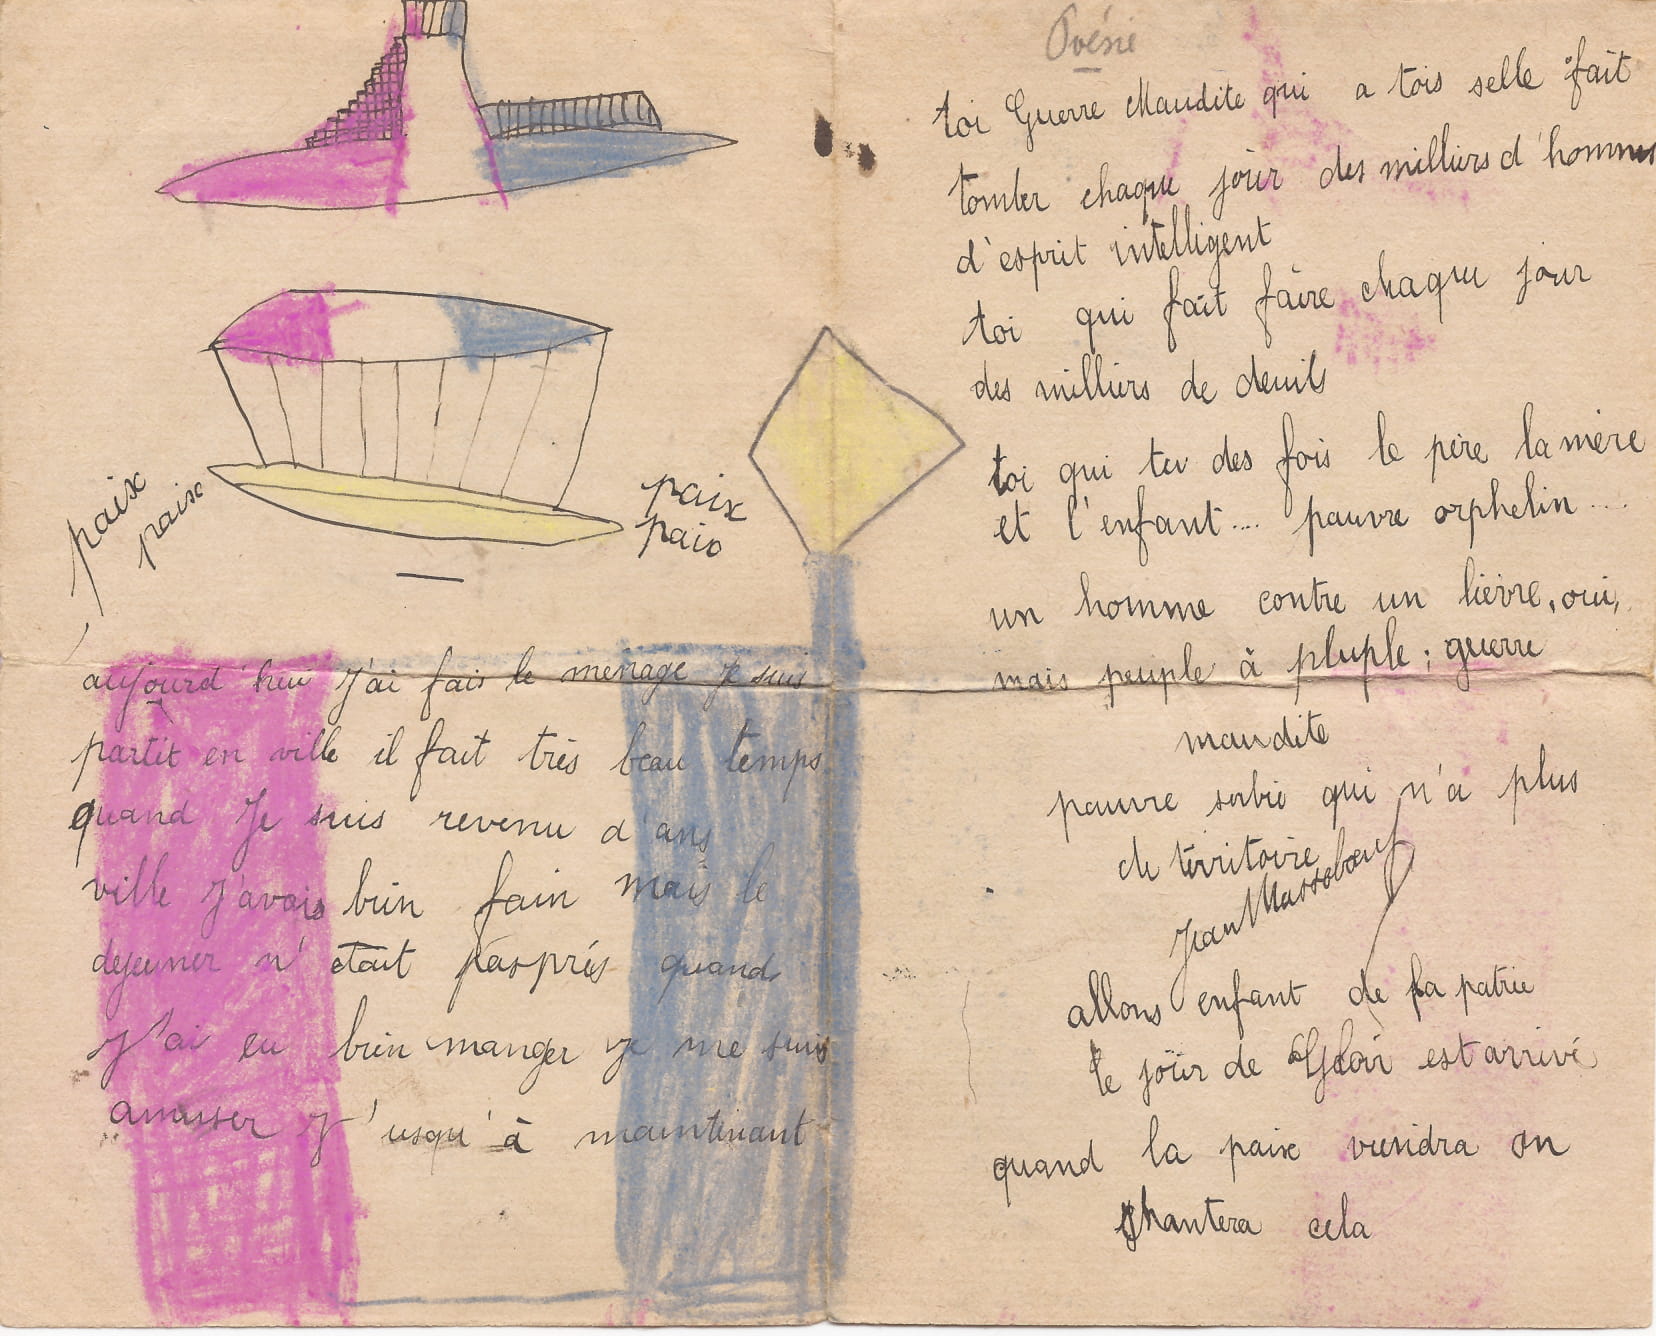 paix
paix
paix
paix
aujourd'hui j'ai fais le ménage je suis
partit en ville il fait très beau temps
quand Je suis revenu d'ans
ville J'avais bien fain mais le
dejeuner n'était pas près quand
J'ai eu bien manger je me suis
amusser J'usqu'à maintenant
Poésie
toi Guerre Maudite qui a tois selle fait
tomber chaque jour des milliers d'hommes
d'esprit intelligent
toi qui fait faire chaque jour
des milliers de deuils
toi qui tu des fois le père la mère
et l'enfant.... pauvre orphelin ....
un homme contre un lièvre, oui,
mais peuple à pluple ; guerre
maudite
pauvre serbie qui n'a plus
de térritoire
Jean Massabœuf
allons enfant de la patrie
le joür de Gloir est arrivé
quand la paix viendra on
chantera cela